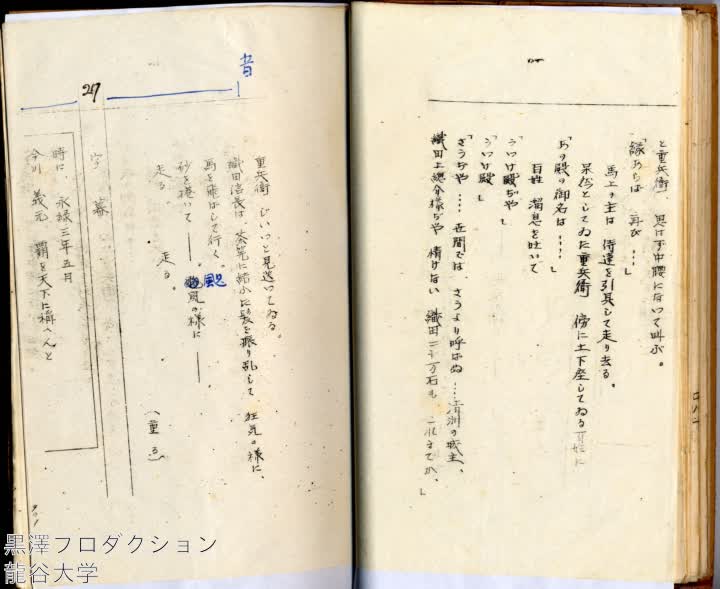 と重兵衛、思はず中腰にないて叫ぶ。
「縁あらば 再び……」
馬上の主は 侍達を引具して走り去る。
呆然としてゐた重兵衛 傍に土下座してゐる百姓に
「あの殿の御名は……」
百姓 溜息を吐いて
「うつけ殿ぢや」
「うつけ殿」
「さうぢや…… 世間では さうより呼ばぬ……清洲の城主、
織田上總介様ぢや 情けない 織田二十万石も これまでか、」
音
27
重兵衛 じいつと見送つてゐる。
織田信長は、茶筅に結つた髪を振り乱して 狂気の様に、
馬を飛ばして行く。
砂を捲いて――。颶風の様に――
颶
走る。 走る。
(重る)
字幕
時に 永禄三年五月
今川 義元 覇を天下に稱へんと
黒澤プロダクション
龍谷大学